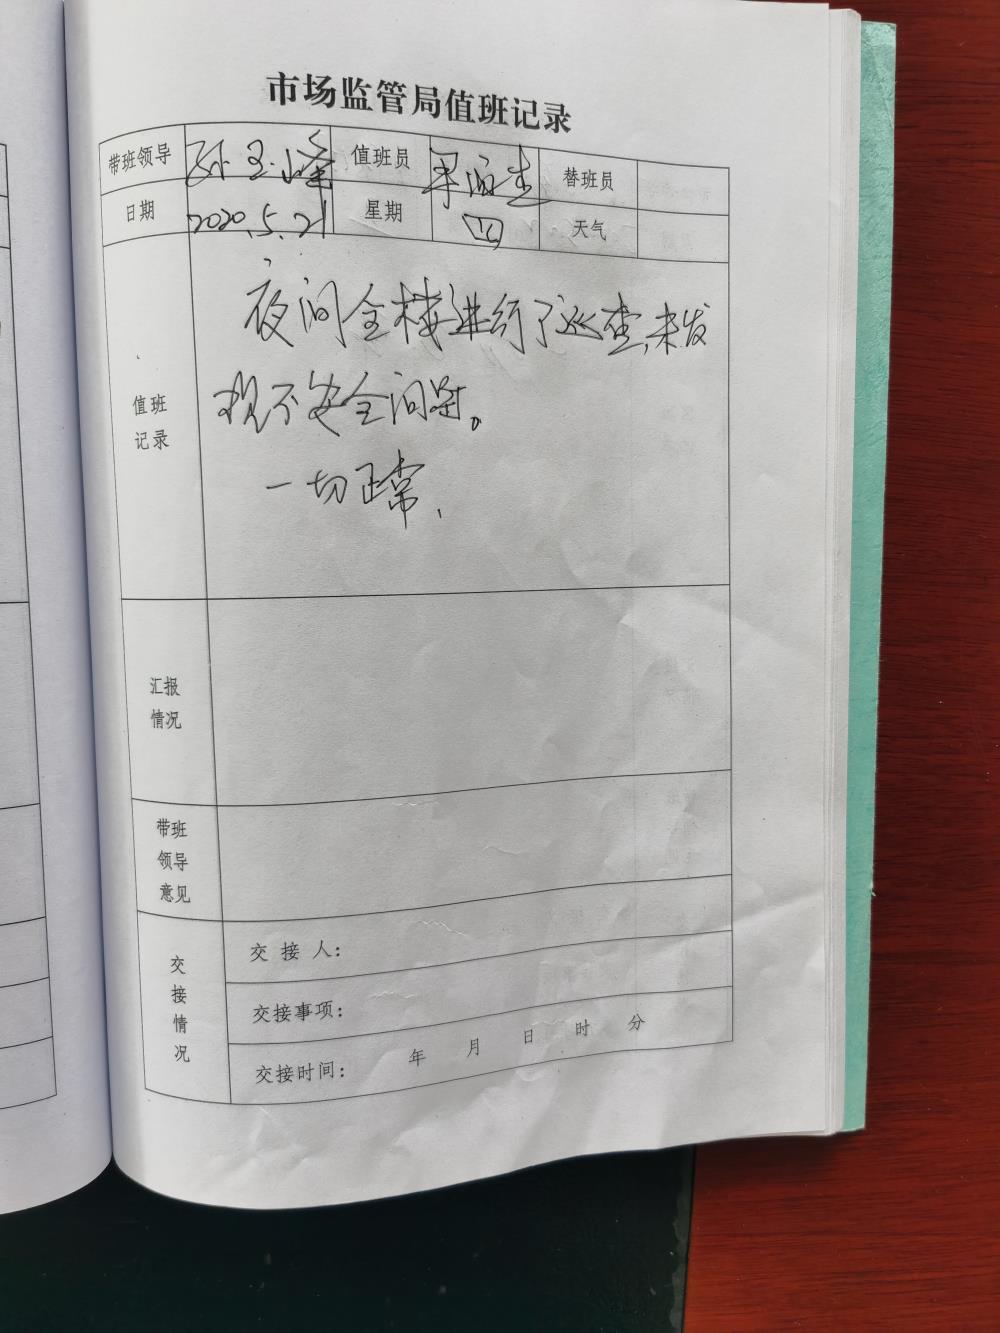 市场监管局值班记录
带班领导 孙玉峰 值班员 替班员
日期 2020.5.21 星期 四 天气
夜间全楼进行了巡查,未发
现不安全问题。
一切正常,
值班
记录
汇报
情况
带班
领导
意见
交接情况
交接人:
交接事项:
交接时间: 年 月 日 时 分